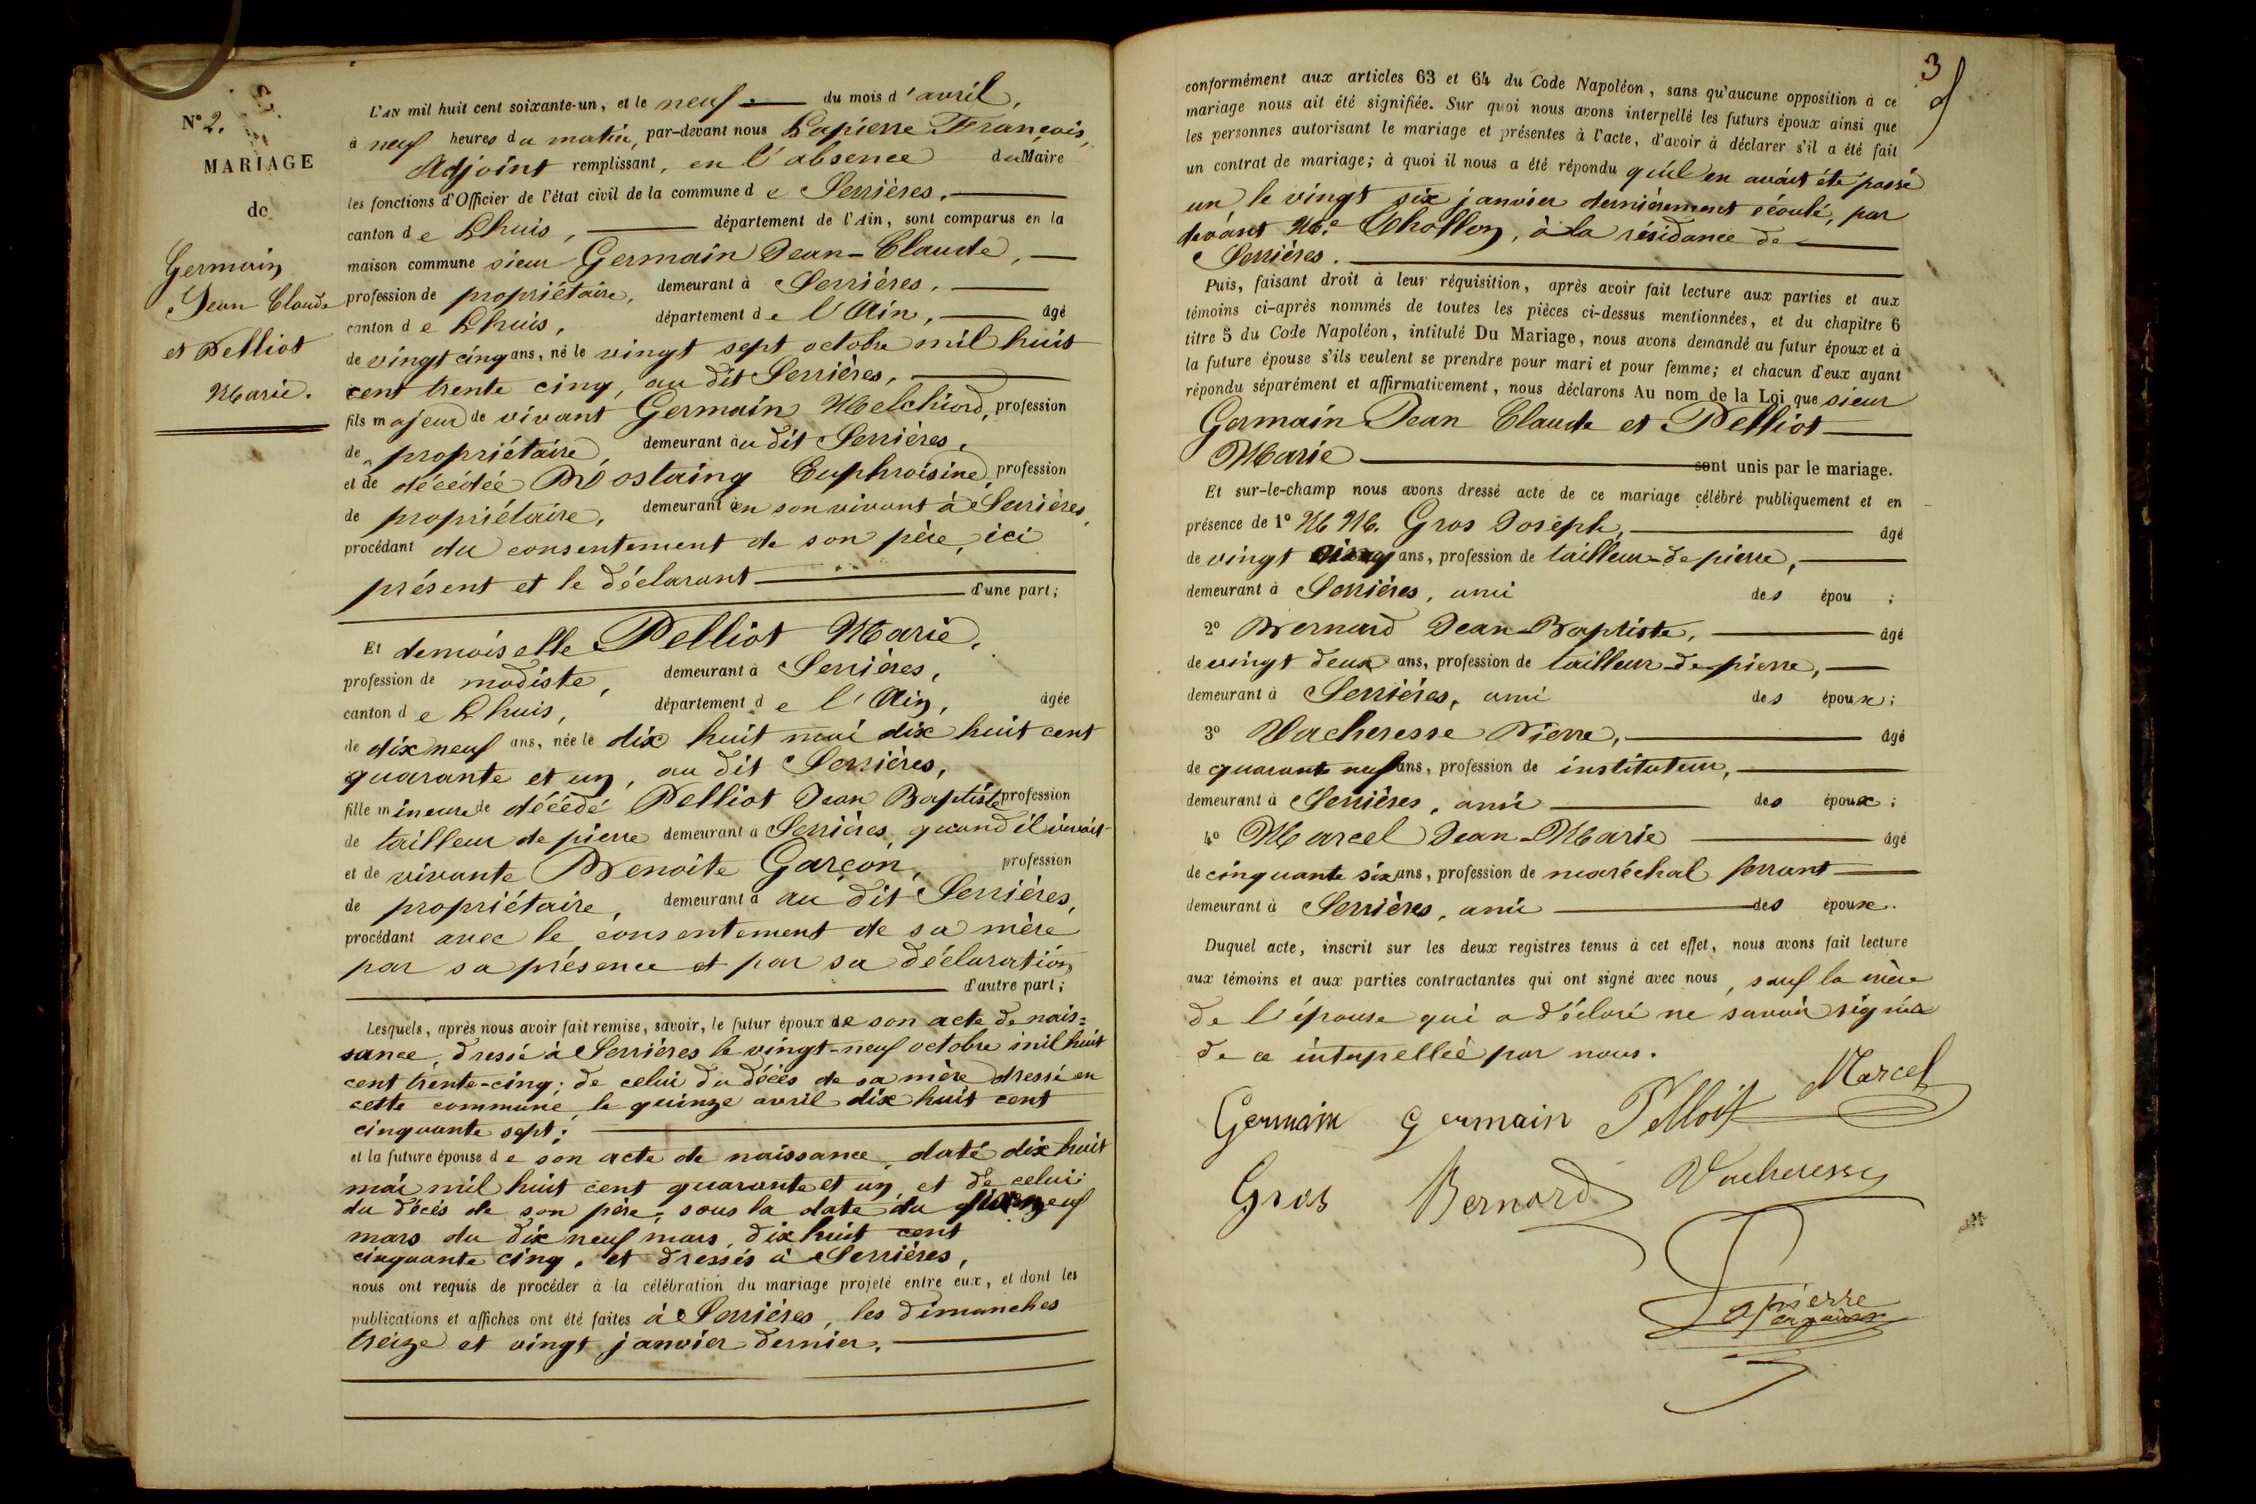 N° 2.
MARIAGE
de
Germain
Jean Claude
et Pelliot
Marie.
L'AN mil huit cent soixante-un, et le neuf du mois d'avril,
à neuf heures du matin, par-devant nous Lapierre François,
Adjoint remplissant, en l'absence du Maire
les fonctions d'Officier de l'état civil de la commune de Serrières,
canton de Lhuis, département de l'Ain, sont comparus en la
maison commune sieur Germain Jean-Claude,
profession de propriétaire, demeurant à Serrières,
canton de Lhuis, département de l'Ain, âgé
de vingt cinq ans, né le vingt sept octobre mil huit
cent trente cinq, au dit Serrières,
fils majeur de vivant Germain Melchiord, profession
de propriétaire, demeurant au dit Serrières,
et de décédée Rostaing Euphroisine, profession
de propriétaire, demeurant en son vivant à Serrières,
procédant du consentement de son père, ici
présent et le déclarant d'une part;
Et demoiselle Pelliot Marie,
profession de modiste, demeurant à Serrières,
canton de Lhuis, département de l'Ain, âgée
de dix neuf ans, née le dix huit mai dix huit cent
quarante et un, au dit Serrières,
fille mineure de décédé Pelliot Jean Baptiste profession
de tailleur de pierre demeurant à Serrières, quand il vivait
et de vivante Benoite Garçon, profession
de propriétaire, demeurant à au dit Serrières,
procédant avec le consentement de sa mère
par sa présence et par sa déclaration
d'autre part;
Lesquels, après nous avoir fait remise, savoir, le futur époux de son acte de nais=
sance, dressé à Serrières le vingt-neuf octobre mil huit
cent trente-cinq; de celui du décès de sa mère dressé en
cette commune, le quinze avril dix huit cent
cinquante sept;
et la future épouse de son acte de naissance, daté dix huit
mai mil huit cent quarante et un, et de celui
du décès de son père, sous la date du
mars du dix neuf mars, dix huit cent
cinquante cinq, et dressés à Serrières,
nous ont requis de procéder à la célébration du mariage projeté entre eux, et dont les
publications et affiches ont été faites à Serrières, les dimanches
treize et vingt janvier dernier.
3
conformément aux articles 63 et 64 du Code Napoléon, sans qu'aucune opposition à ce
mariage nous ait été signifiée. Sur quoi nous avons interpellé les futurs époux ainsi que
les personnes autorisant le mariage et présentes à l'acte, d'avoir à déclarer s'il a été fait
un contrat de mariage; à quoi il nous a été répondu qu'il en avait été passé
un, le vingt six janvier dernièrement écoulé, par
devant Me. Chollon, à la résidance de
Serrières.
Puis, faisant droit à leur réquisition, après avoir fait lecture aux parties et aux
témoins ci-après nommés de toutes les pièces ci-dessus mentionnées, et du chapitre 6
titre 5 du Code Napoléon, intitulé Du Mariage, nous avons demandé au futur époux et à
la future épouse s'ils veulent se prendre pour mari et pour femme; et chacun d'eux ayant
répondu séparément et affirmativement, nous déclarons Au nom de la Loi que sieur
Germain Jean Claude et Pelliot
Marie sont unis par le mariage.
Et sur-le-champ nous avons dressé acte de ce mariage célébré publiquement et en
présence de 1° M M. Gros Joseph, âgé
de vingt cinq ans, profession de tailleur-de pierre,
demeurant à Serrières, ami des épou ;
2° Bernard Jean-Baptiste, âgé
de vingt deux ans, profession de tailleur-de-pierre,
demeurant à Serrières, ami des époux;
3° Vacheresse Pierre, âgé
de quarante neuf ans, profession de instituteur,
demeurant à Serrières, ami des époux;
4° Marcel Jean-Marie âgé
de cinquante six ans, profession de maréchal ferrant
demeurant à Serrières, ami des époux.
Duquel acte, inscrit sur les deux registres tenus à cet effet, nous avons fait lecture
aux témoins et aux parties contractantes qui ont signé avec nous, sauf la mère
de l'épouse qui a déclaré ne savoir signer
de ce interpellée par nous.
Germain germain Pelliot Marcel
Gros Bernard Vacheresse
Lapierre